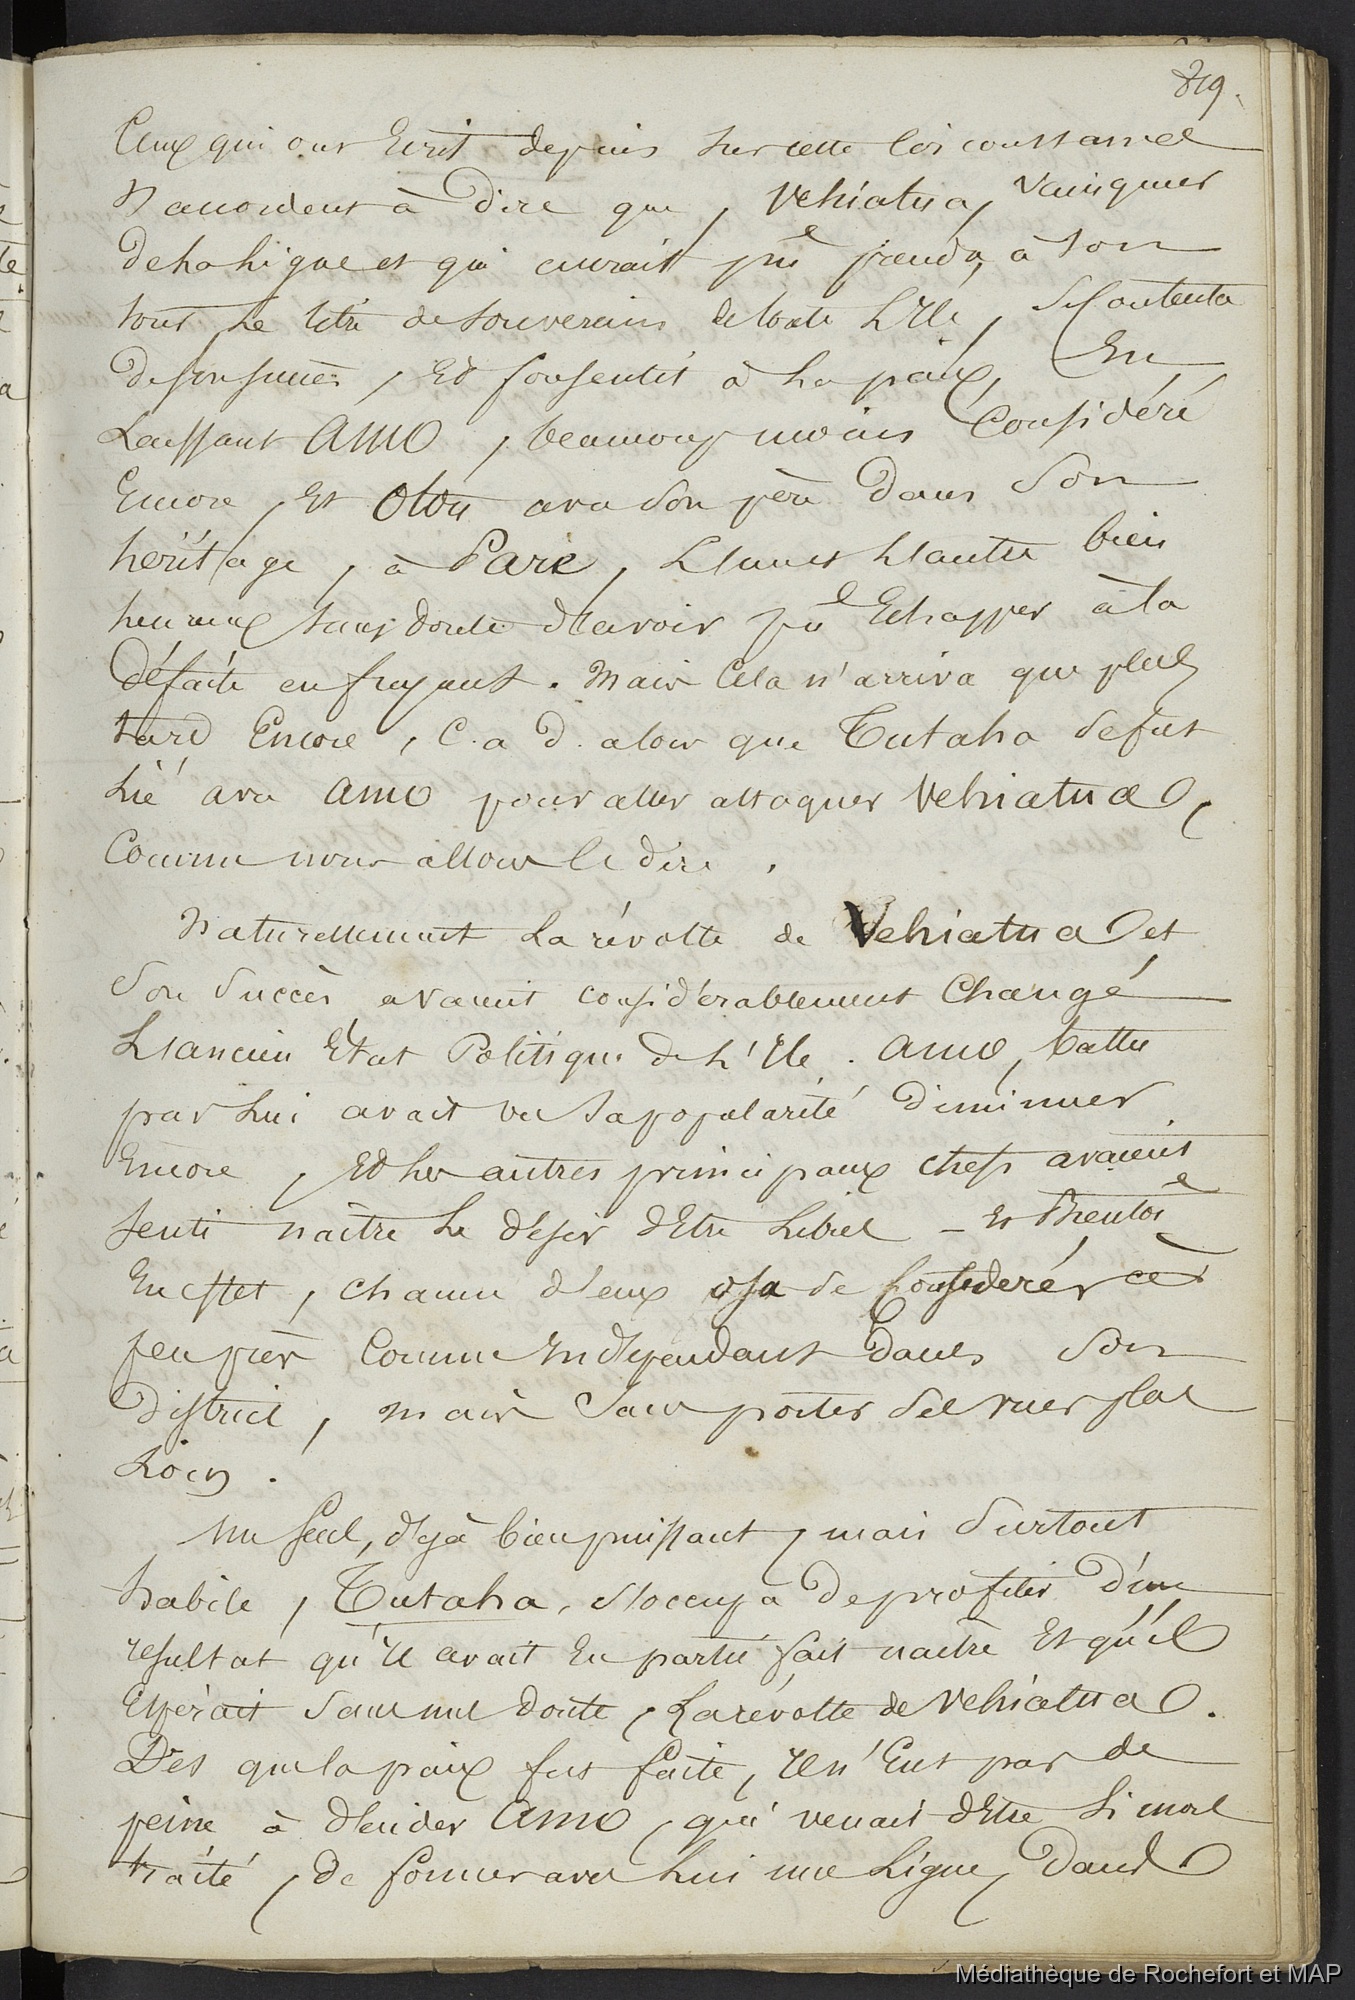 819.
Ceux qui ont Ecrit depuis sur cette circonstance
s'accordent à dire que, Vehiatua, vainqueur
de la ligue et qui aurait pu prendre, à son
tour le titre de souverain de toute L'Ile, se Contenta
de son succès, Et Consentit à la paix, En
Laissant Amo, beaucoup moins Considéré
Encore, Et Otou avec son père dans son
héritage, à Paré, L'un et L'autre bien
heureux sans doute d'avoir pu Echapper à la
défaite en fuyant. Mais Cela n'arriva que plus
tard Encore, C. a d. alors que Tutaha se fut
lié avec Amo pour aller attaquer Vehiatua,
Comme nous allons le dire.
Naturellement La révolte de Vehiatua et
son succès avaient considérablement Changé
L'ancien Etat Politique de L'Ile. Amo, battu
par Lui avait vu sa popularité diminuer
Encore, Et les autres principaux chefs avaient
senti naître le désir d'Etre Libres – Et Bientôt
En effet, chacun d'eux osa se Considérer à
peu près Comme Indépendant dans son
District, mais sans porter ses vues plus
Loin.
Un seul, déjà bien puissant, mais surtout
habile, Tutaha, s'occupa de profiter d'un
résultat qu'il avait En partie fait naître Et qu'il
Espérait sans nul doute, La révolte de Vehiatua.
Dès que la paix fut faite, il n'Eut pas de
peine à décider Amo, qui venait d'Etre si mal
traité, de former avec Lui une Ligue, dans
Médiathèque de Rochefort et MAP